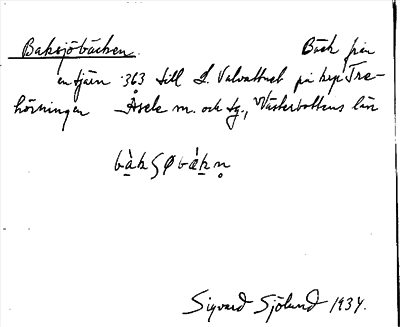 Baksjöbäcken. Bäck från
en tjärn 363 till L. Valvattnet på krp Tre-
hörningen Åsele sn. och tg., Västerbottens län
Sigvard Sjölund 1934.